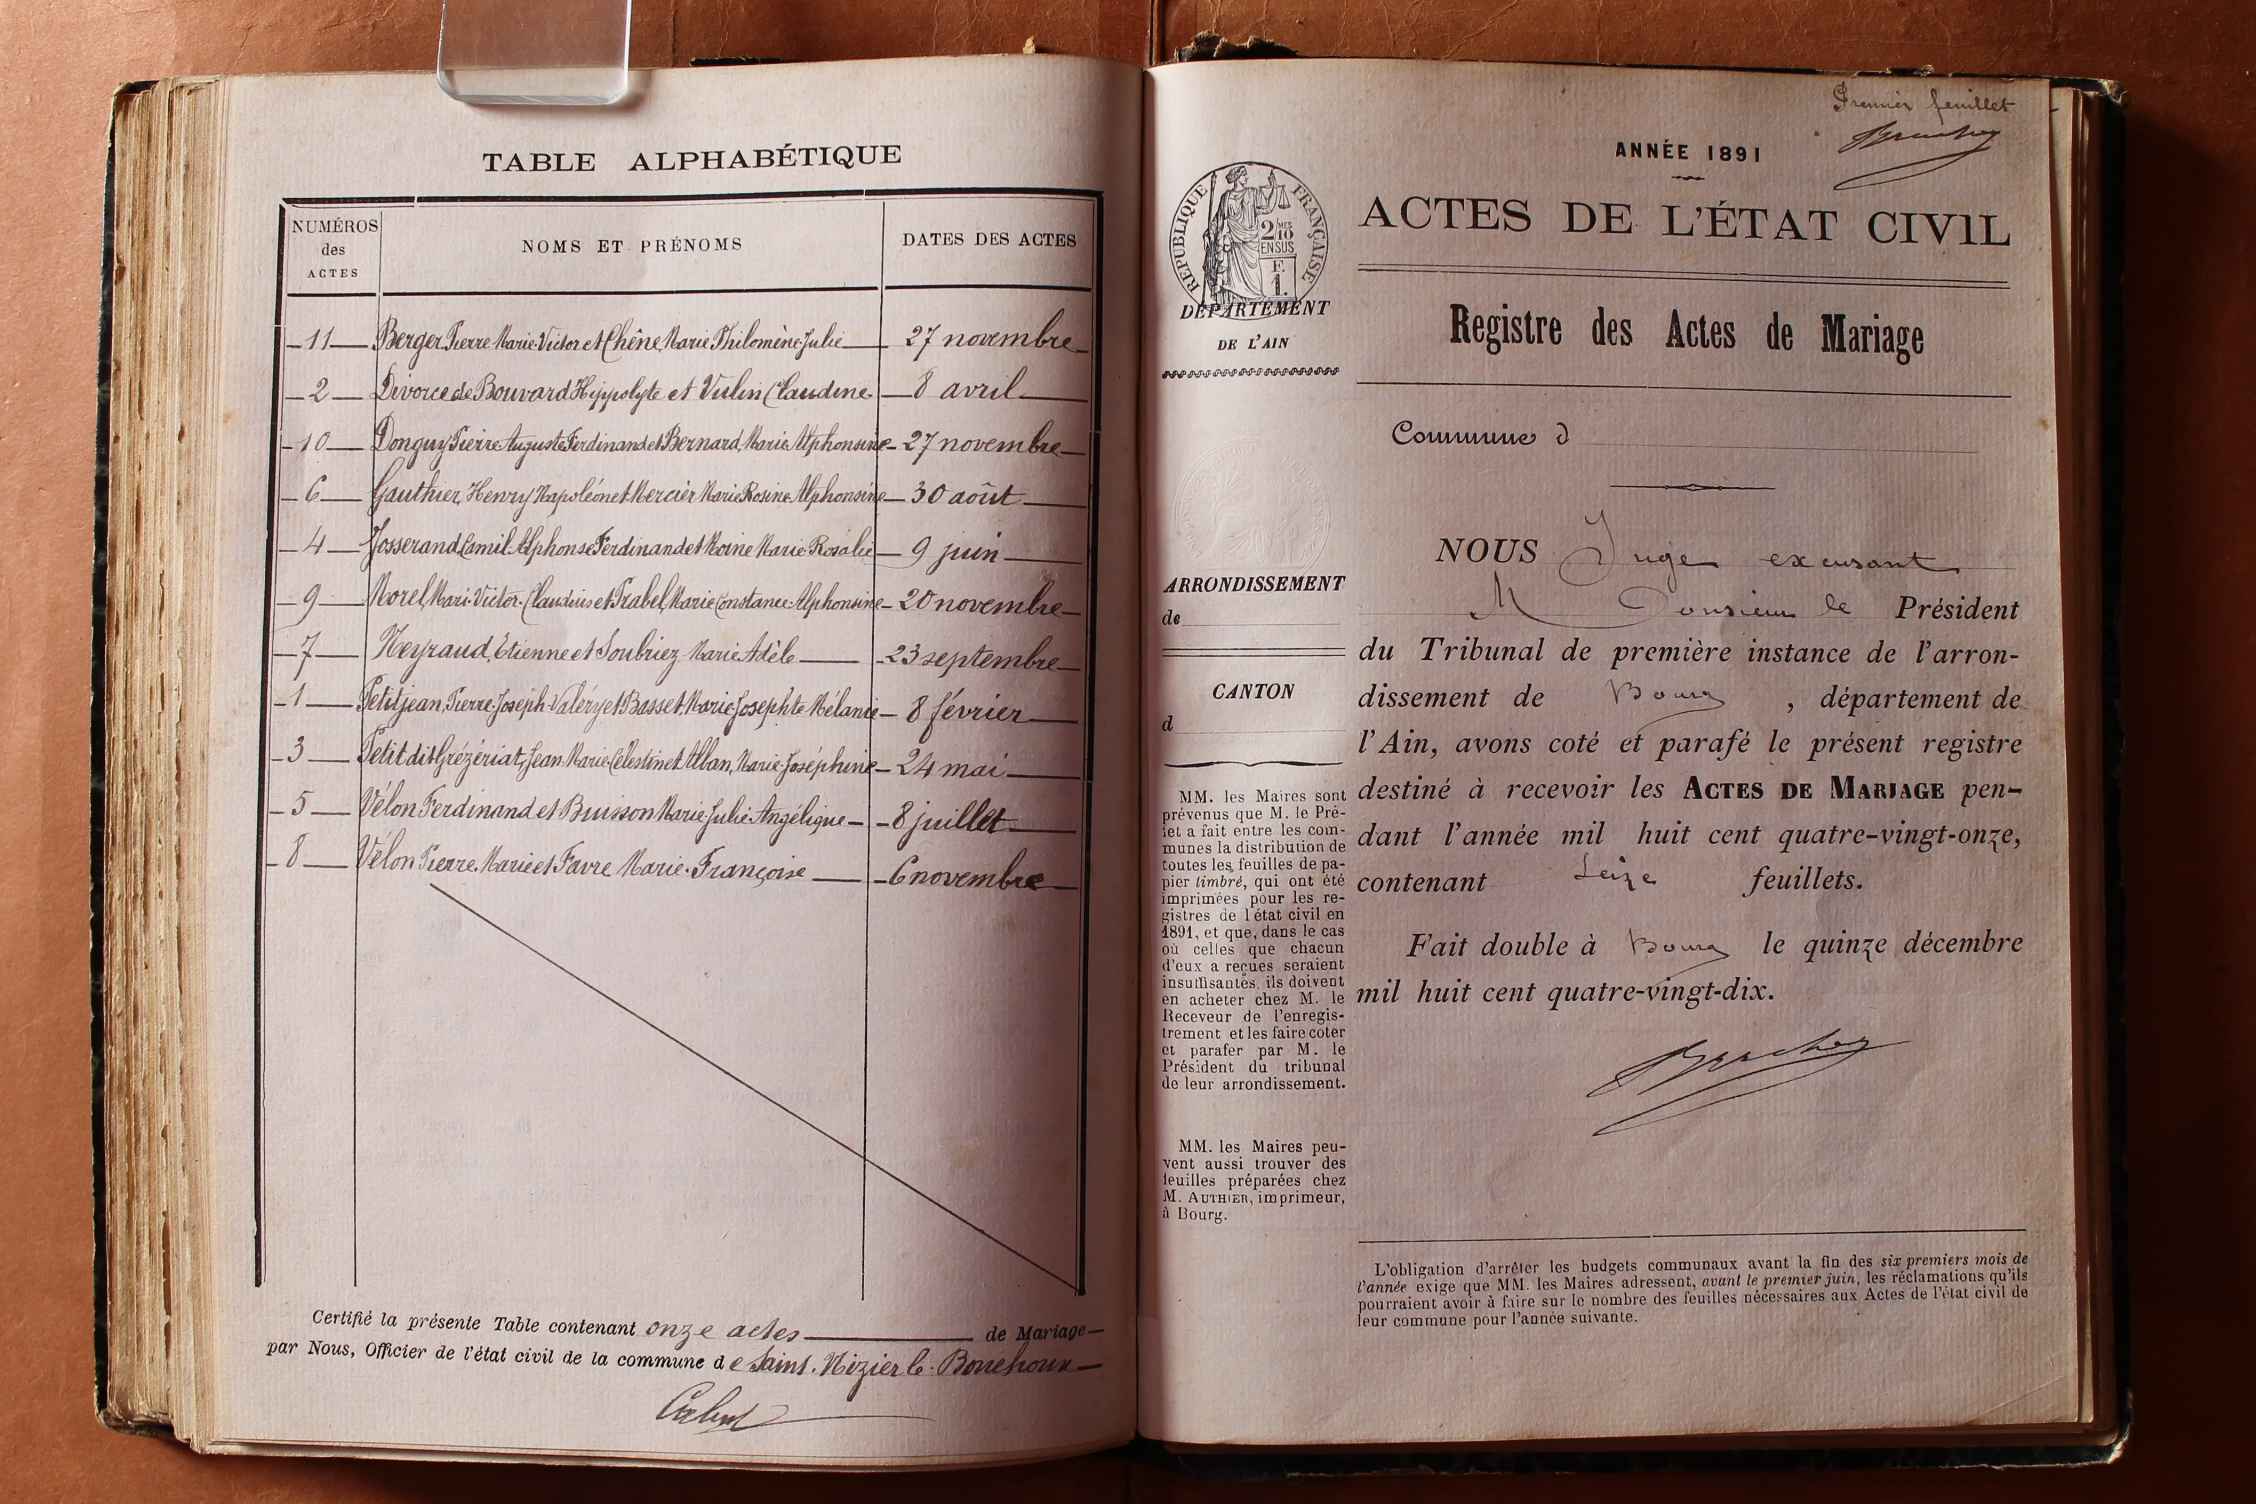 TABLE ALPHABÉTIQUE
NUMÉROS
des
ACTES
NOMS ET PRÉNOMS
DATES DES ACTES
11 Berger, Pierre Marie Victor et Chêne, Marie Philomène Julie 27 novembre
2 Divorce de Bouvard Hippolyte et Vulin Claudine 8 avril
10 Donguy Pierre Auguste Ferdinand et Bernard, Marie Alphonsine 27 novembre
6 Gauthier, Henry Napoléon et Mercier Marie Rosine Alphonsine 30 août
4 Josserand Camil Alphonse Ferdinand et Moine Marie Rosalie 9 juin
9 Morel, Mari Victor Claudius et Prabel, Marie Constance Alphonsine 20 novembre
7 Neyraud, Etienne et Soubriez Marie Adèle 23 septembre
1 Petitjean, Pierre Joseph Valéry et Basset, Marie Josephte Mélanie 8 février
3 Petit dit Grézériat, Jean Marie Célestin et Alban, Marie Joséphine 24 mai
5 Vélon Ferdinand et Buisson Marie Julie Angélique 8 juillet
8 Vélon Pierre Marie et Favre Marie Françoise 6 novembre
Certifié la présente Table contenant onze actes de Mariage
par Nous, Officier de l'état civil de la commune de Saint-Nizier le Bouchoux
Premier feuillet
ANNÉE 1891
ACTES DE L'ÉTAT CIVIL
RÉPUBLIQUE FRANÇAISE
2 MES
10
EN SUS
F.
1.
DÉPARTEMENT
DE L'AIN
ARRONDISSEMENT
de
CANTON
d
MM. les Maires sont
prévenus que M. le Pré-
fet a fait entre les com-
munes la distribution de
toutes les feuilles de pa-
pier timbré, qui ont été
imprimées pour les re-
gistres de l'état civil en
1891, et que, dans le cas
où celles que chacun
d'eux a reçues seraient
insuffisantes, ils doivent
en acheter chez M. le
Receveur de l'enregis-
trement et les faire coter
et parafer par M. le
Président du tribunal
de leur arrondissement.
MM. les Maires peu-
vent aussi trouver des
feuilles préparées chez
M. AUTHIER, imprimeur,
à Bourg.
Registre des Actes de Mariage
Commune d
NOUS Juge excusant
Monsieur le Président
du Tribunal de première instance de l'arron-
dissement de Bourg, département de
l'Ain, avons coté et parafé le présent registre
destiné à recevoir les ACTES DE MARIAGE pen-
dant l'année mil huit cent quatre-vingt-onze,
contenant Seize feuillets.
Fait double à Bourg le quinze décembre
mil huit cent quatre-vingt-dix.
L'obligation d'arrêter les budgets communaux avant la fin des six premiers mois de
l'année exige que MM. les Maires adressent, avant le premier juin, les réclamations qu'ils
pourraient avoir à faire sur le nombre des feuilles nécessaires aux Actes de l'état civil de
leur commune pour l'année suivante.